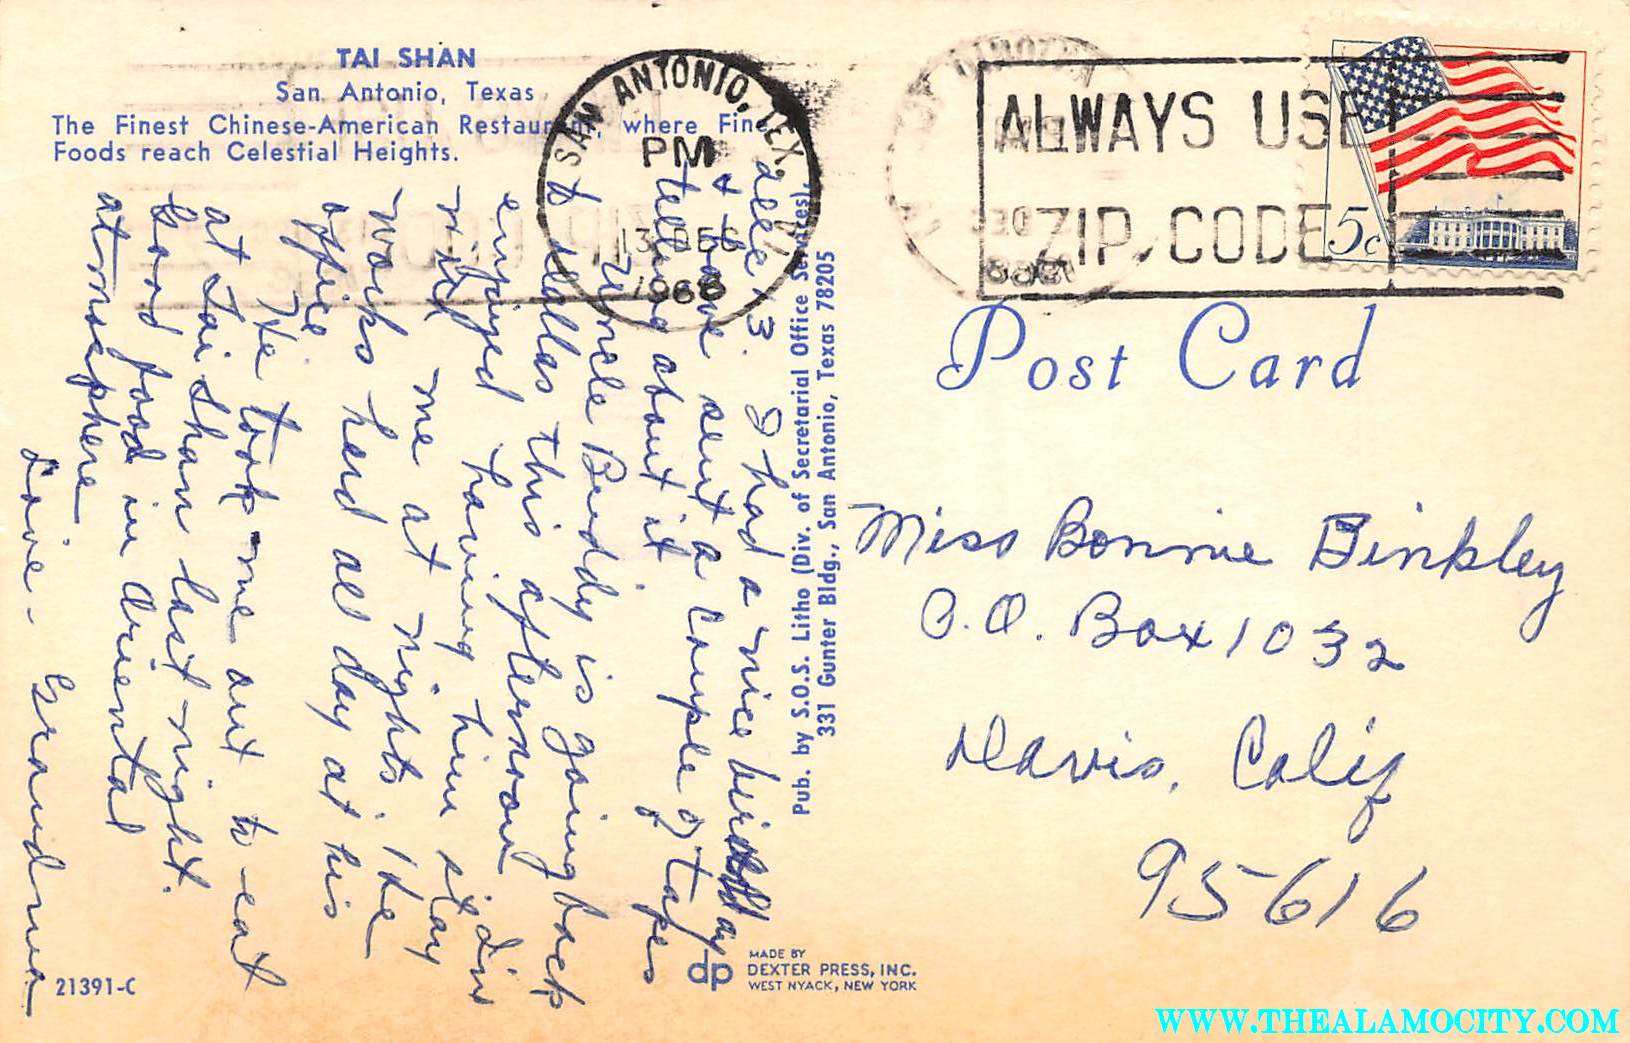 TAI SHAN
San Antonio, Texas
The Finest Chinese-American Restaurant, where Fine
Foods reach Celestial Heights.
SAN ANTONIO, TEX.
PM
13 DEC
1966
ALWAYS USE
ZIP CODE
5c
Post Card
Dec. 13
I had a nice birthday
& have sent a couple of tapes
telling about it
Uncle Buddy is going back
to Dallas this afternoon
enjoyed having him stay
with me at nights. He
works hard all day at his
office
He took me out to eat
at Tai Shan last night.
Good food in oriental
atmosphere
Love - Grandma
Pub. by S.O.S. Litho (Div. of Secretarial Office Services),
331 Gunter Bldg., San Antonio, Texas 78205
Miss Bonnie Binkley
P.O. Box 1032
Davis, Calif
95616
21391-C
dp
MADE BY
DEXTER PRESS, INC.
WEST NYACK, NEW YORK
WWW.THEALAMOCITY.COM